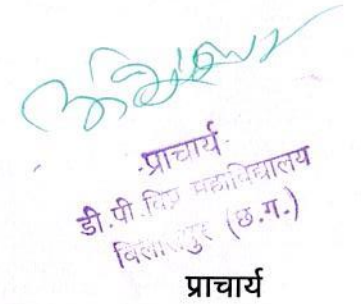 प्राचार्य
डी.पी.विप्र महाविद्यालय
बिलासपुर (छ.ग.)
प्राचार्य